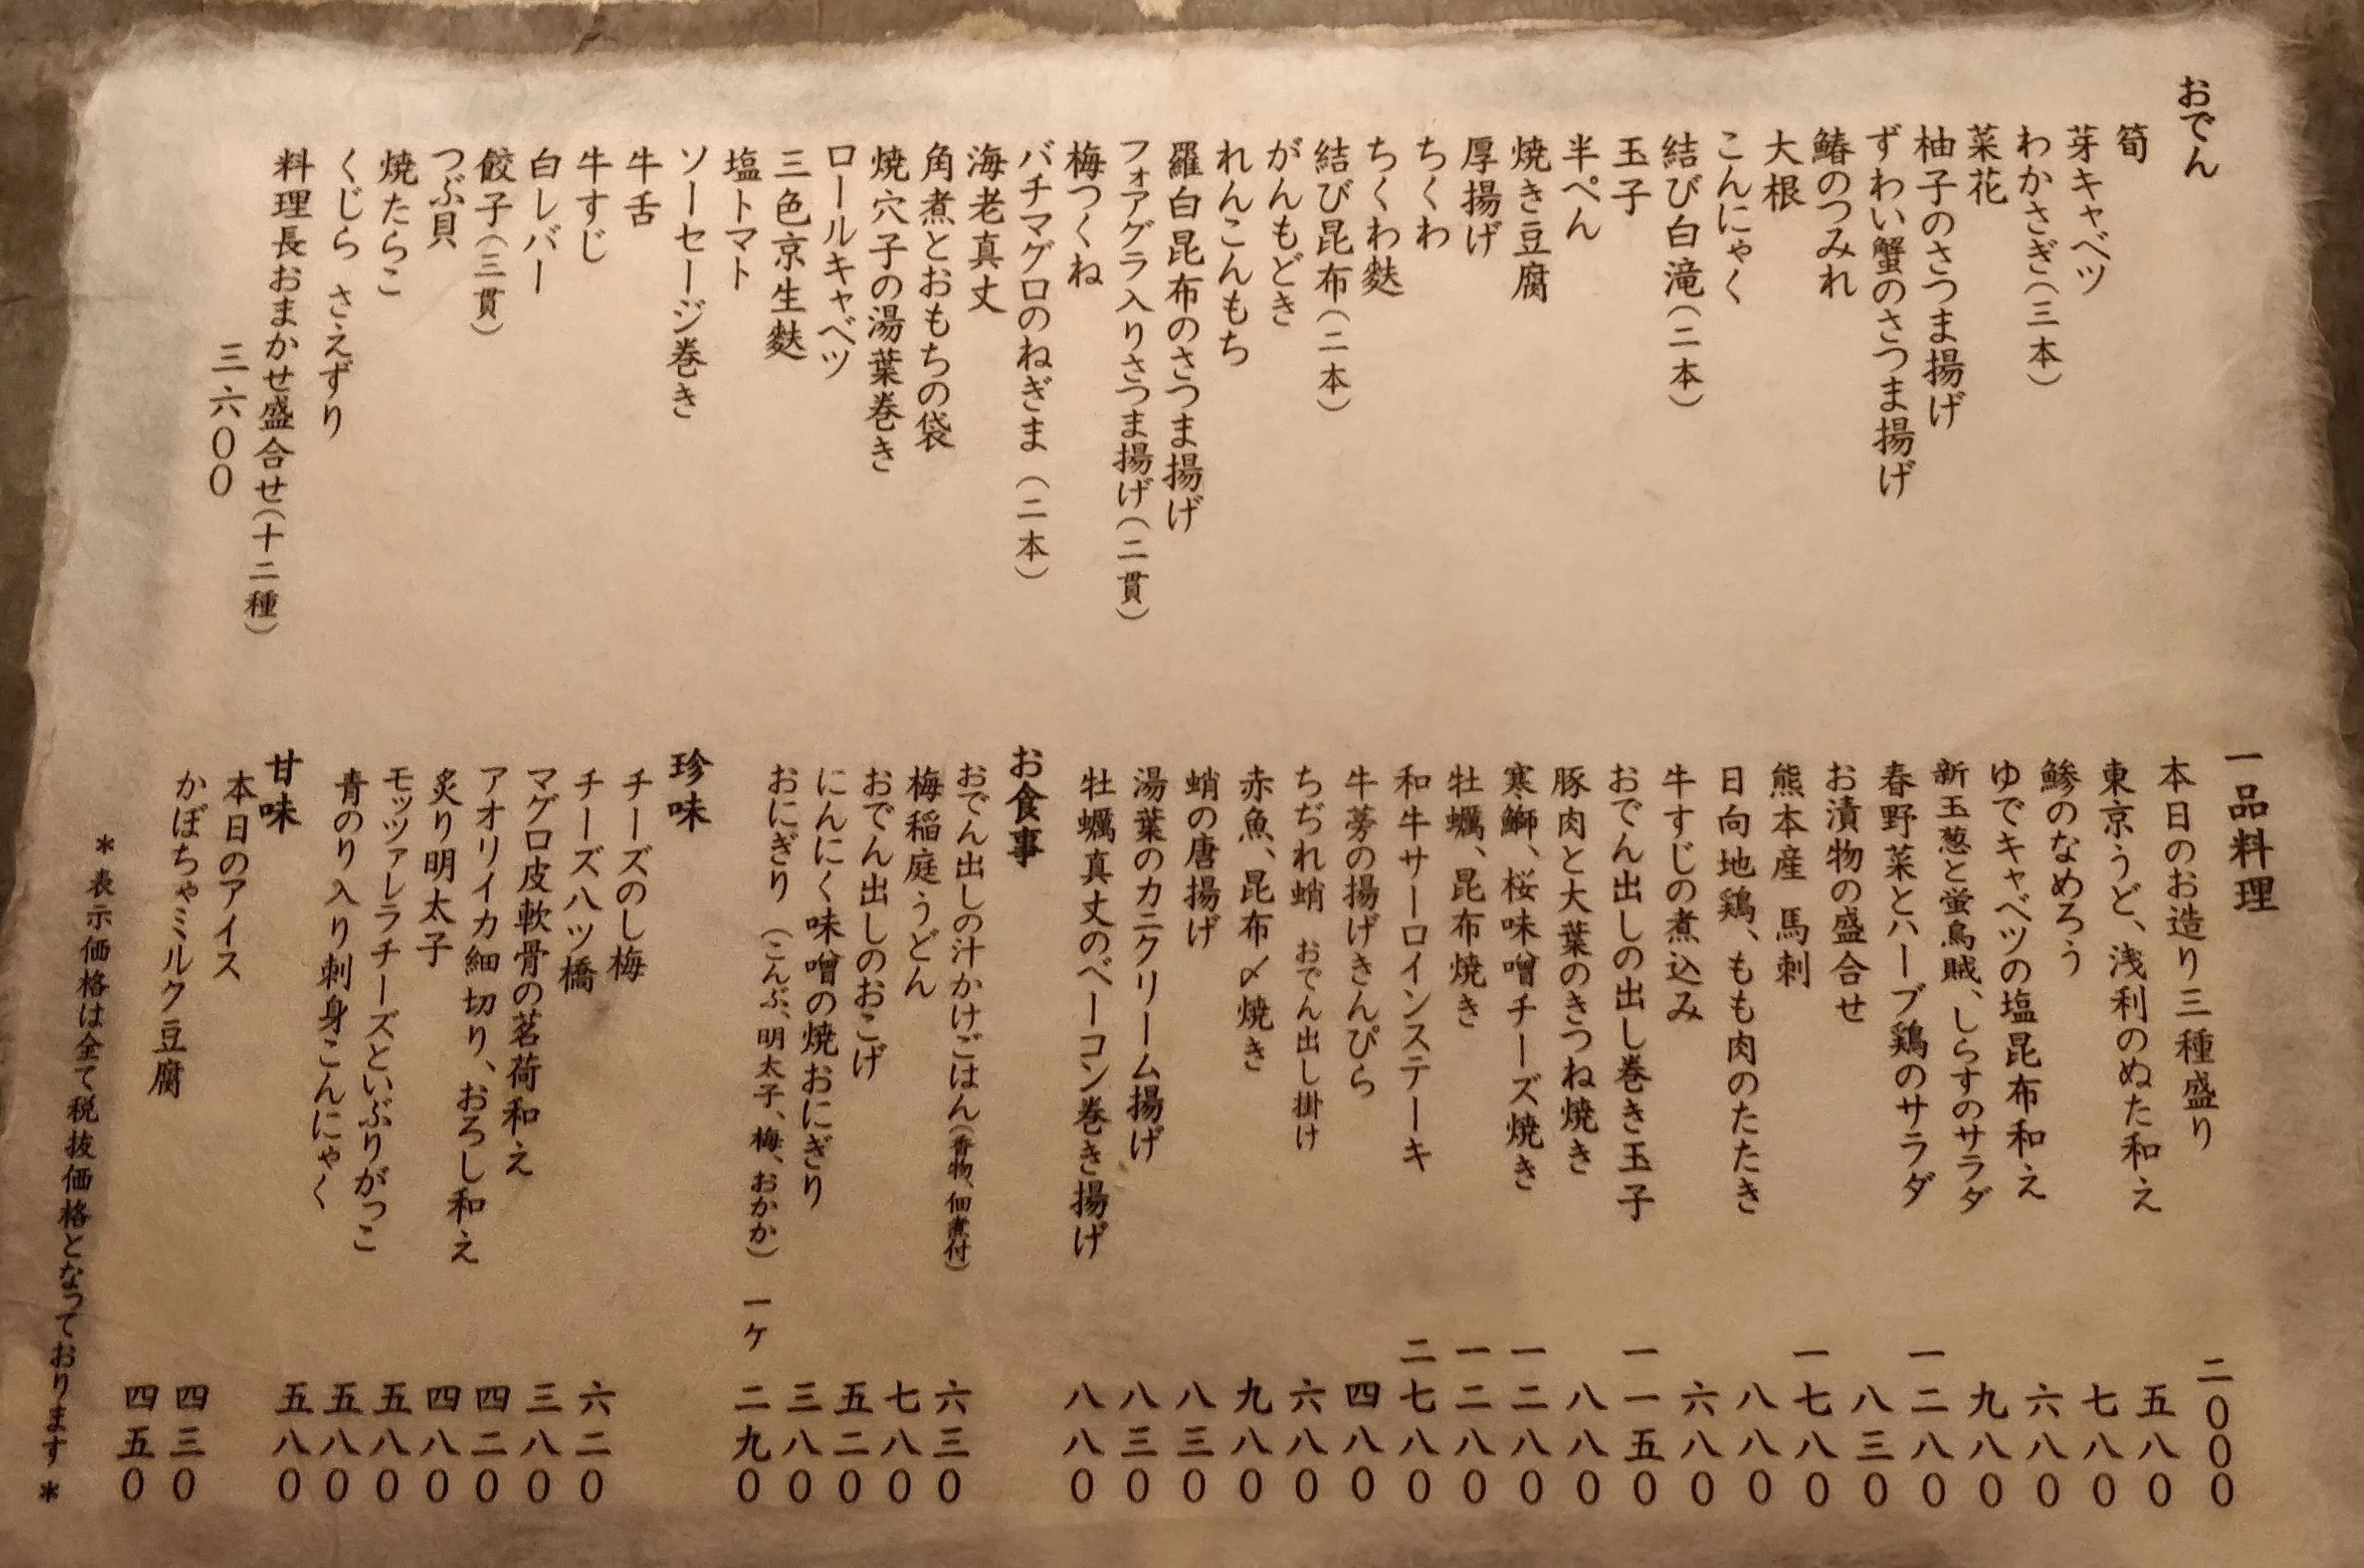 おでん
筍
芽キャベツ
わかさぎ（三本）
菜花
柚子のさつま揚げ
ずわい蟹のさつま揚げ
鰆のつみれ
大根
こんにゃく
結び白滝（二本）
玉子
半ぺん
焼き豆腐
厚揚げ
ちくわ
ちくわ麩
結び昆布（二本）
がんもどき
れんこんもち
羅臼昆布のさつま揚げ
フォアグラ入りさつま揚げ（二貫）
梅つくね
バチマグロのねぎま（二本）
海老真丈
角煮とおもちの袋
焼穴子の湯葉巻き
ロールキャベツ
三色京生麩
塩トマト
ソーセージ巻き
牛舌
牛すじ
白レバー
餃子（三貫）
つぶ貝
焼たらこ
くじら さえずり
料理長おまかせ盛合せ（十二種）
三六〇〇
一品料理
本日のお造り三種盛り 二〇〇〇
東京うど、浅利のぬた和え 五八〇
鯵のなめろう 七八〇
ゆでキャベツの塩昆布和え 六八〇
新玉葱と蛍烏賊、しらすのサラダ 九八〇
春野菜とハーブ鶏のサラダ 一二八〇
お漬物の盛合せ 八三〇
熊本産 馬刺 一七八〇
日向地鶏、もも肉のたたき 八八〇
牛すじの煮込み 六八〇
おでん出しの出し巻き玉子 一一五〇
豚肉と大葉のきつね焼き 八八〇
寒鰤、桜味噌チーズ焼き 一二八〇
牡蠣、昆布焼き 一二八〇
和牛サーロインステーキ 二七八〇
牛蒡の揚げきんぴら 四八〇
ちぢれ蛸 おでん出し掛け 六八〇
赤魚、昆布〆焼き 九八〇
蛸の唐揚げ 八三〇
湯葉のカニクリーム揚げ 八三〇
牡蠣真丈のベーコン巻き揚げ 八八〇
お食事
おでん出しの汁かけごはん（香物、佃煮付） 六三〇
梅稲庭うどん 七八〇
おでん出しのおこげ 五二〇
にんにく味噌の焼おにぎり 三八〇
おにぎり（こんぶ、明太子、梅、おかか） 一ケ 二九〇
珍味
チーズのし梅 六二〇
チーズ八ツ橋 三八〇
マグロ皮軟骨の茗荷和え 四二〇
アオリイカ細切り、おろし和え 四八〇
炙り明太子 五八〇
モッツァレラチーズといぶりがっこ 五八〇
青のり入り刺身こんにゃく 五八〇
甘味
本日のアイス 四三〇
かぼちゃミルク豆腐 四五〇
＊表示価格は全て税抜価格となっております＊